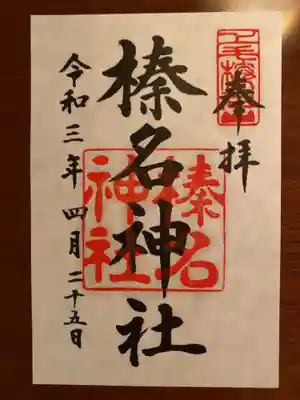 奉拝
榛名神社
榛名
神社
令和三年四月二十五日